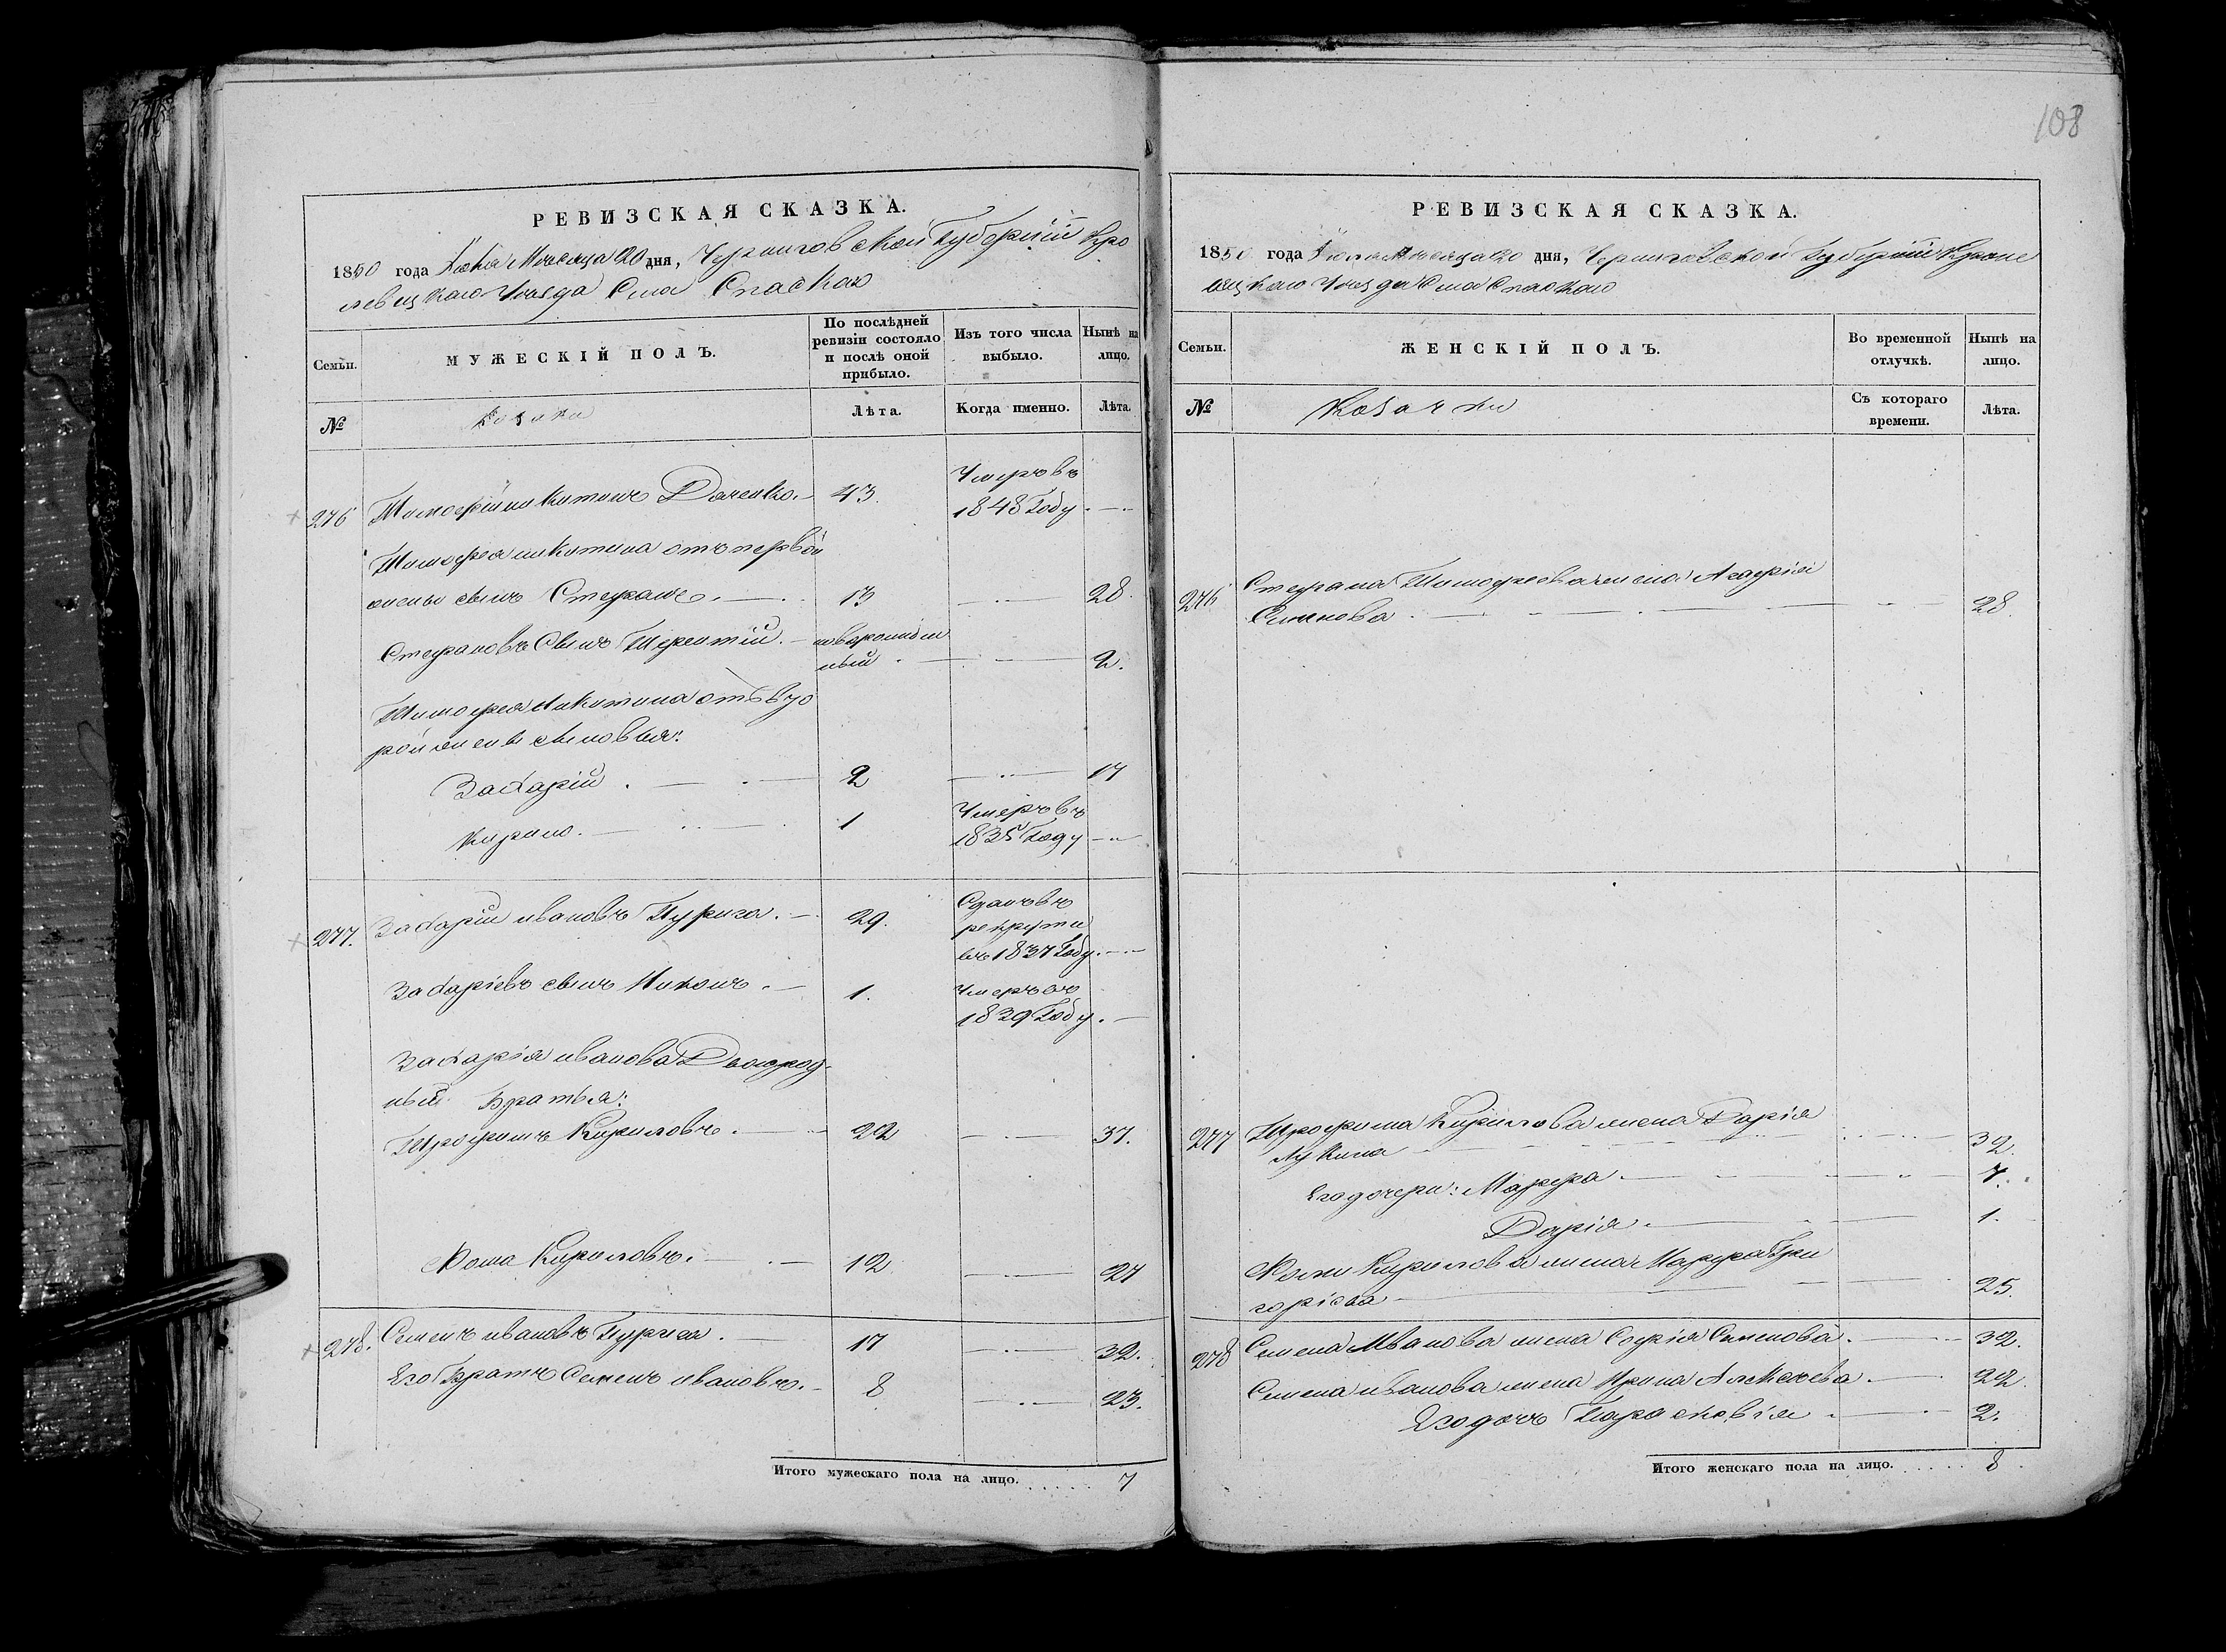 РЕВИЗСКАЯ СКАЗКА.
1850 года Июня Месяца 20 дня, Черниговской Губерніи Кро
левецкаго Уезда Села Спаскаго
Семьи.
МУЖЕСКІЙ ПОЛЪ.
По послѣдней
ревизіи состояло
и послѣ оной
прибыло.
Изъ того числа
выбыло.
Нынѣ на
лицо.
№
Козаки
Лѣта.
Когда именно.
Лѣта.
276 Тимофій Никитинъ Даченко. 43. Умеръ въ
1848 Году
Тимофея Никитина отъ первой
жены сынъ Стефанъ. 13 28.
Стефановъ Сынъ Терентій. новорожден
ный 2.
Тимофея Никитина отъ вто
рой жены сыновья:
Захарій 2 17
Кирило. 1 Умеръ въ
1835 Году
277. Захарій Ивановъ Пурига. 29. Сданъ въ
рекруты
въ 1837 Году
Захаріевъ сынъ Никонъ. 1. Умеръ въ
1839 Году.
Захарія Иванова Двоюрод-
ный Братья:
Трофимъ Кириловъ. 22 37.
Фома Кириловъ. 12 27
278. Семенъ Ивановъ Пурига. 17 32.
Его Братъ Семенъ Ивановъ. 8 23.
Итого мужескаго пола на лицо. 7
108
РЕВИЗСКАЯ СКАЗКА.
1850 года Июня Месяца 20 дня, Черниговской Губерніи Кроле
вецкаго Уезда Села Спаскаго
Семьи.
ЖЕНСКІЙ ПОЛЪ.
Во временной
отлучкѣ.
Нынѣ на
лицо.
№
Козачки
Съ котораго
времени.
Лѣта.
276 Стефана Тимофеева жена Агафія
Семенова 28.
277 Трофима Кирилова жена Дарія
Лукина 32.
Его дочери: Марфа. 7.
Дарія. 1.
Фомы Кирилова жена Марфа Гри
горіева 25.
278 Семена Иванова жена Софія Семенова. 32.
Семена Иванова жена Ирина Алексеева. 22.
Его дочь Парасковія 2.
Итого женскаго пола на лицо. 8.